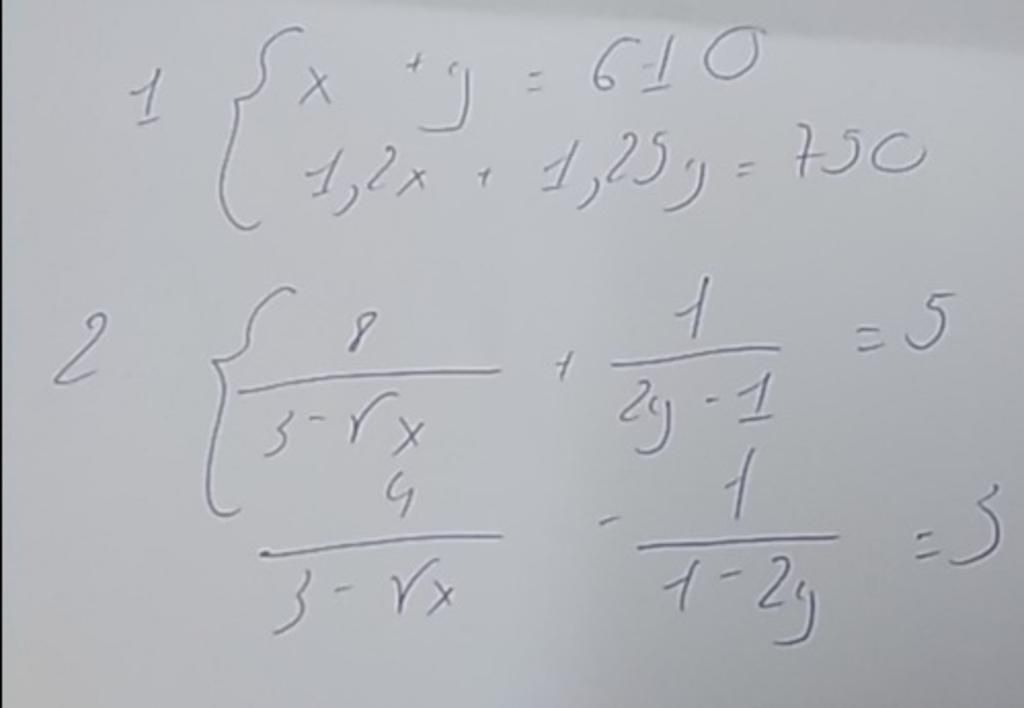 1 { x + y = 610
1,2x + 1,25y = 750
2 { 8/(3 - √x) + 1/(2y - 1) = 5
4/(3 - √x) - 1/(1 - 2y) = 3